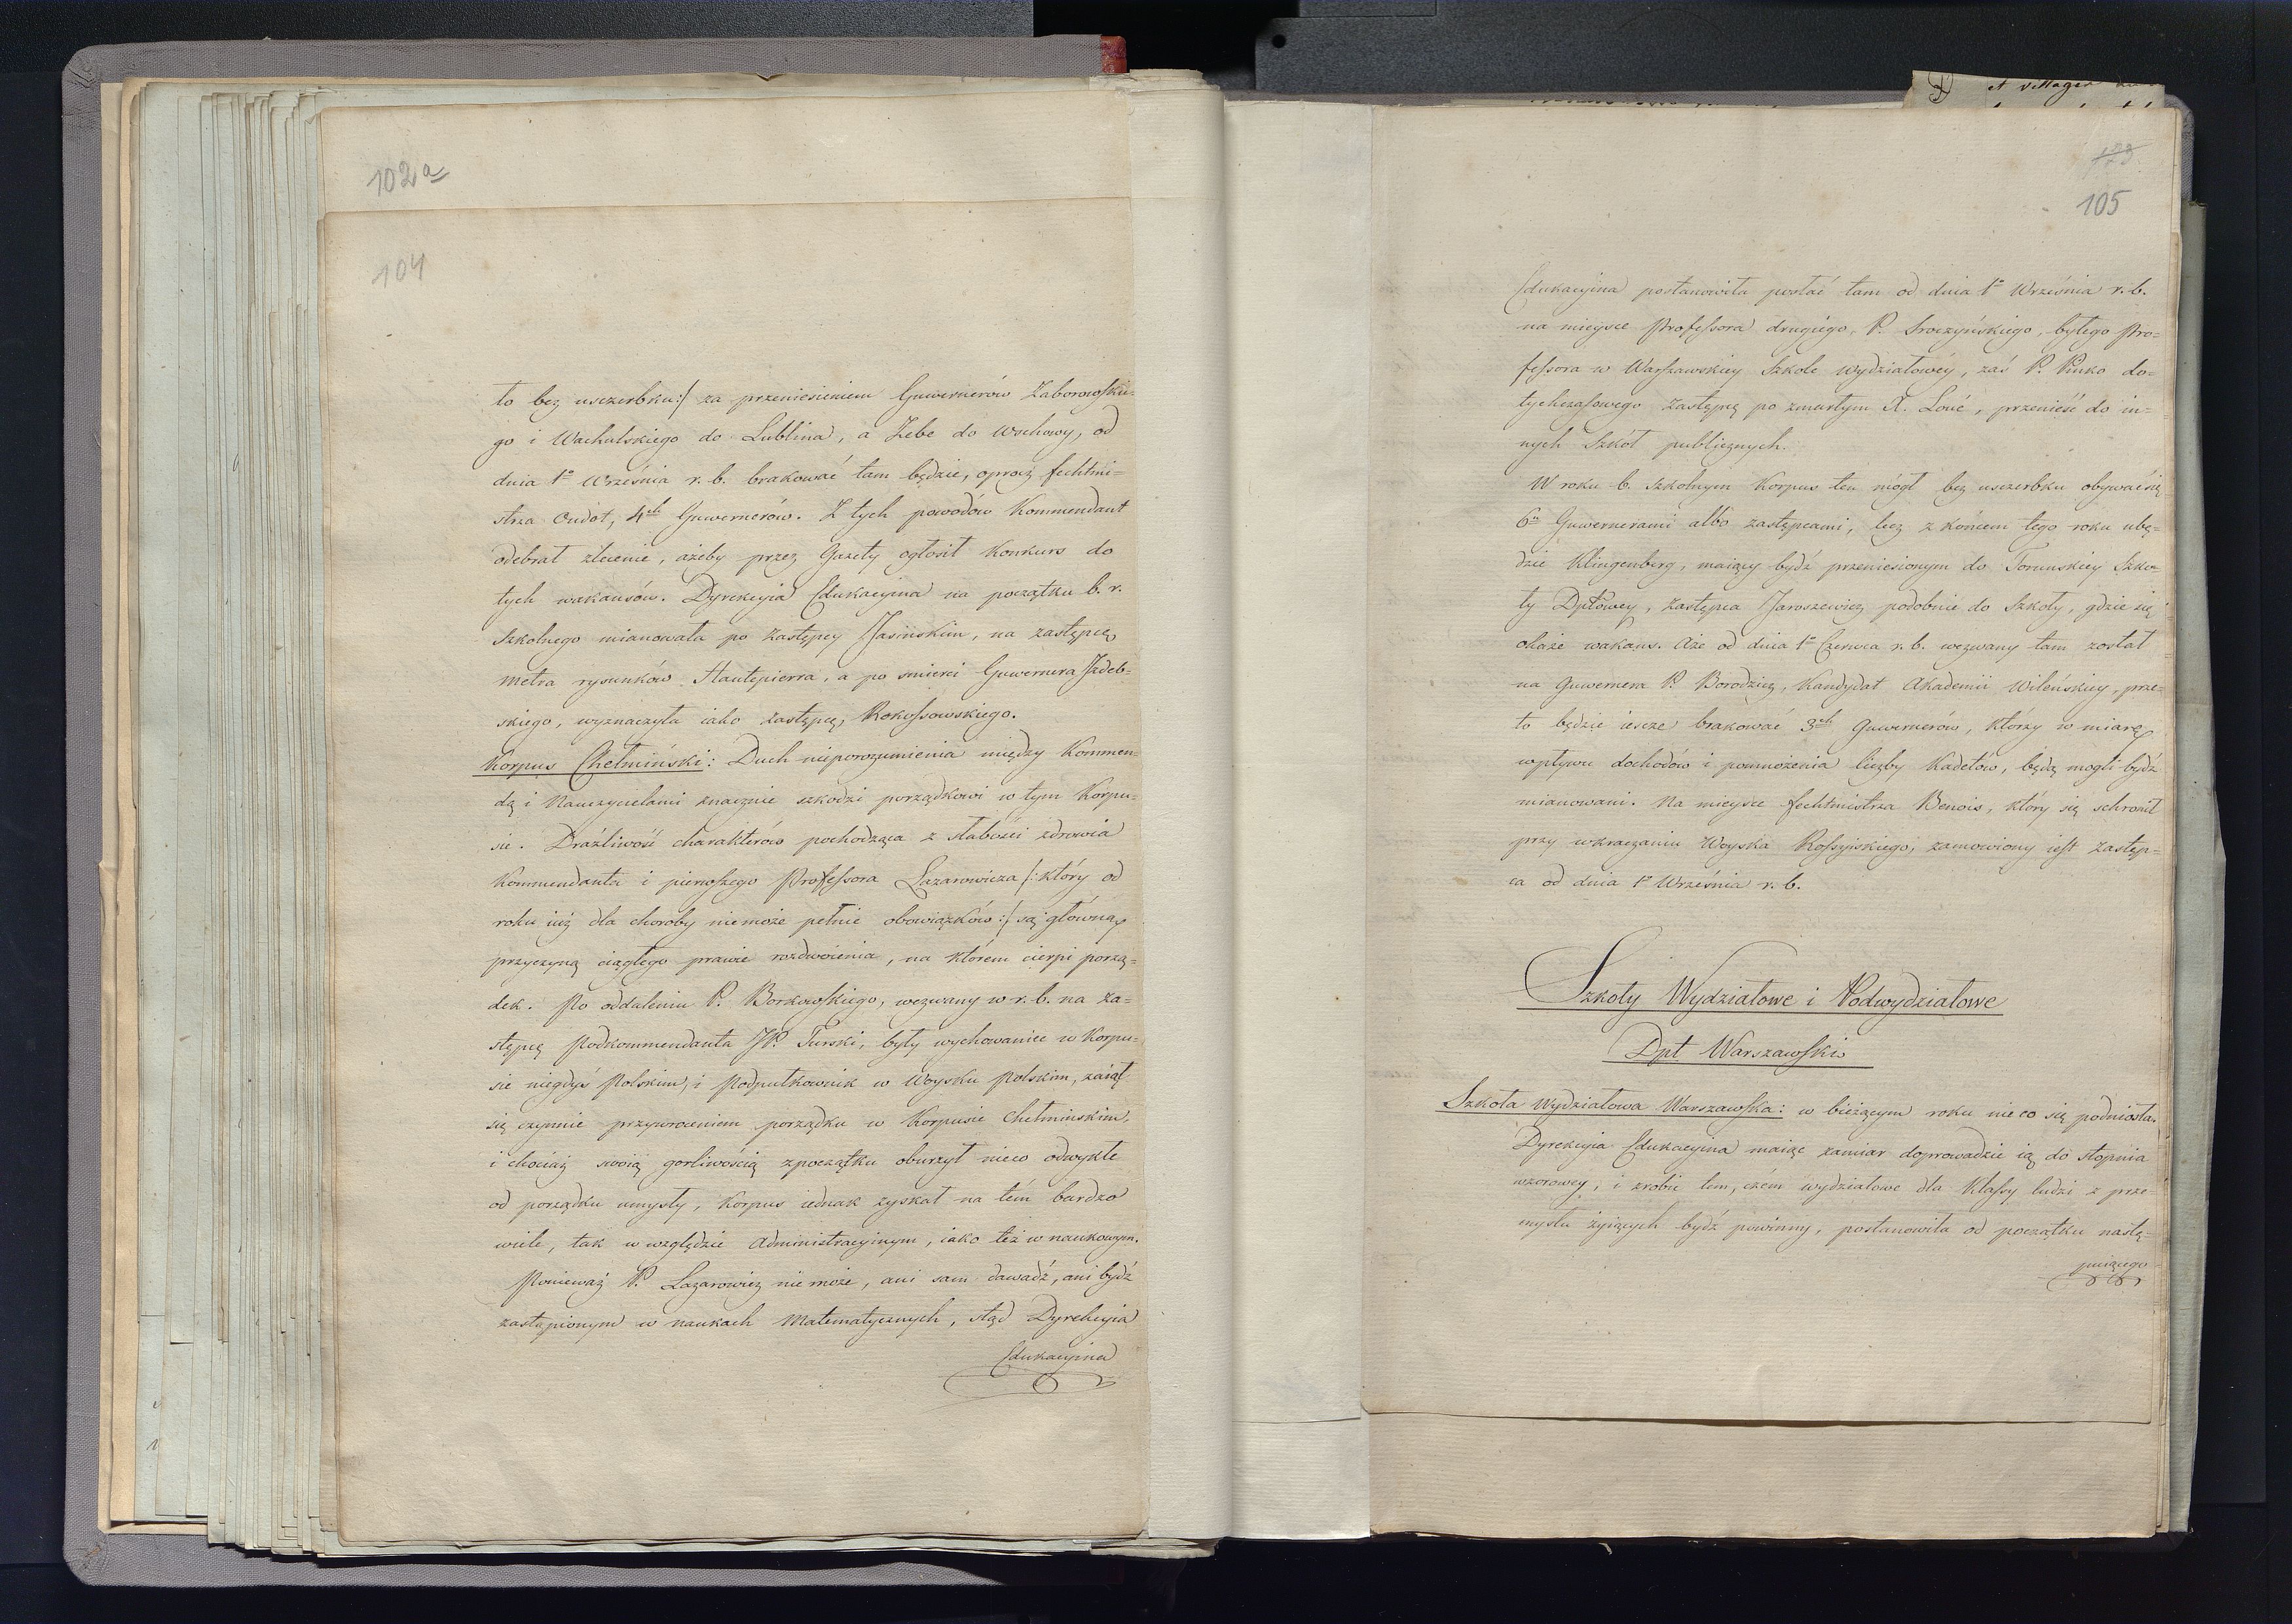 102a
104
to bez usczerbku:/ za przeniesieniem Guwernerów Zaborowskie=
go i Wachulskiego do Lublina, a Zebe do Wschowy, od
dnia 1º Września r. b. brakować tam będzie, oprócz fechtmi=
strza Oudot, 4ch Guwernerów. Z tych powodów Kommendant
odebrał zlecenie, ażeby przez Gazety ogłosił Konkurs do
tych wakansów. Dyrekcyia Edukacyina na początku b. r.
Szkolnego mianowała po Zastępcy Jasińskim, na zastępcę
metra rysunków Hautepierra, a po smierci Guwernera Jadeb=
skiego, wyznaczyła iako zastępcę, Rokossowskiego.
Korpus Chełmiński: Duch nieporozumienia między Kommen=
dą i Nauczycielami znacznie szkodzi porządkowi w tym Korpu=
sie. Draźliwość charakterów pochodząca z słabości zdrowia
Kommendanta i pierwszego Professora Lazarowicza /:który od
roku iuż dla choroby niemoże pełnić obowiązków:/ są główną
przyczyną ciągłego prawie rozdwoienia, na którem cierpi porzą=
dek. Po oddaleniu P. Borkowskiego, wezwany w r. b. na za=
stępcę Podkommendanta JP. Turski, były wychowaniec w Korpu=
sie niegdyś Polskim, i Podpułkownik w Woysku Polskim, zaiął
się czynnie przywroceniem porządku w Korpusie Chełminskim,
i chociaż swoią gorliwością zpoczątku oburzył nieco odwykłe
od porządku umysły, Korpus iednak zyskał na tém bardzo
wiele, tak w względzie Administracyinym, iako też w naukowym.
Ponieważ P. Lazarowicz nie może, ani sam dawadź, ani bydź
zastąpionym w naukach Matematycznych, stąd Dyrekcyia
Edukacyina
105
Edukacyina postanowiła posłać tam od dnia 1º Września r. b.
na mieysce Professora drugiego, P. Sroczyńskiego, byłego Pro=
fessora w Warszawskiey Szkole Wydziałowéy, zaś P. Pinko do=
tychczasowego Zastępcę po zmarłym X. Loué, przenieść do in=
nych Szkół publicznych.
W roku b. Szkolnym Korpus ten mógł bez usczerbku obywać się
6u Guwernerami albo zastępcami, lecz z końcem tego roku ubę=
dzie Klingenberg, maiący bydź przeniesionym do Toruńskiey Szko=
ły Dptowey, Zastępca Jaroszewicz podobnie do Szkoły, gdzie się
okaże wakans. Aże od dnia 1º Czerwca r. b. wezwany tam został
na Guwernera P. Borodzicz, Kandydat Akademii Wileńskiey, prze=
to będzie iescze brakować 3ch Guwernerów, którzy w miarę
wpływu dochodów i pomnożenia liczby Kadetów, będą mogli bydź
mianowani. Na mieysce fechtmistrza Benois, który się schronił
przy wkraczaniu Woyska Rossyiskiego, zamowiony iest zastęp=
ca od dnia 1º Września r. b.
Szkoły Wydziałowe i Podwydziałowe
Dpt Warszawski
Szkoła Wydziałowa Warszawska: w bieżącym roku nieco się podniosła.
Dyrekcyia Edukacyina maiąc zamiar doprowadzić ią do stopnia
wzorowey, i zrobić tem, czém wydziałowe dla Klassy ludzi z prze=
mysłu żyiących bydź powinny, postanowiła od początku nastę=
puiącego